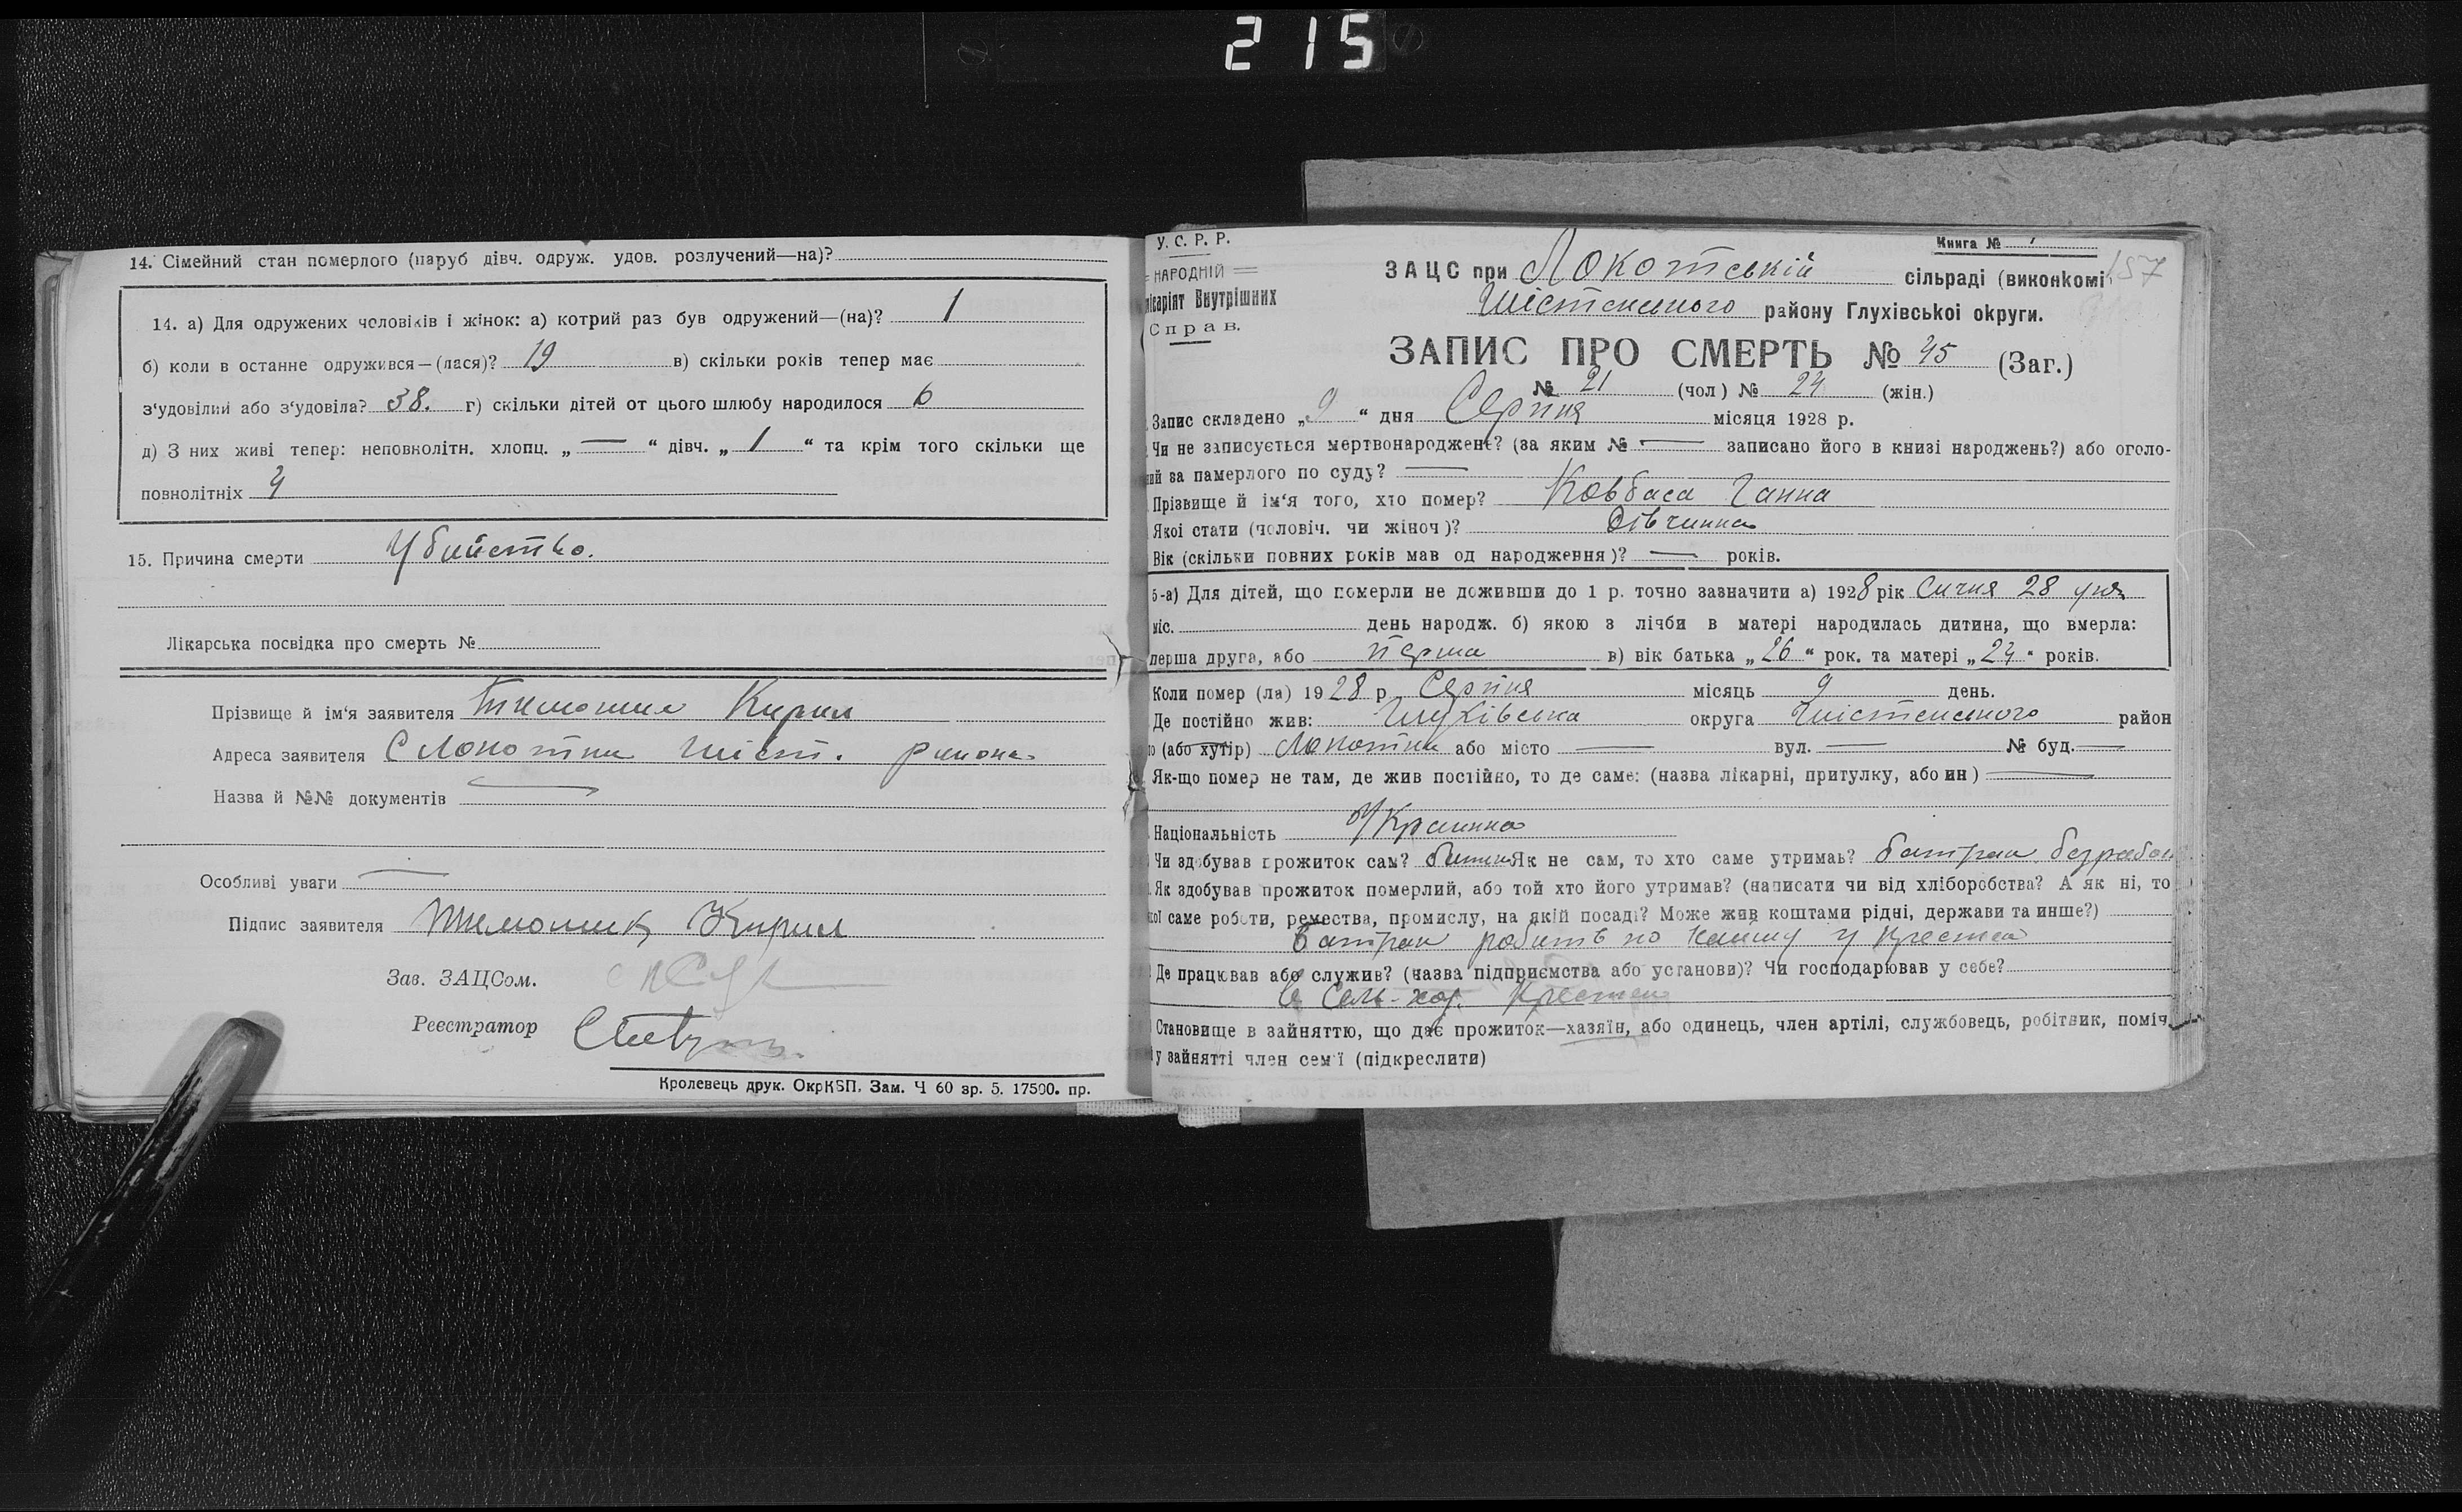 215
14. Сімейний стан померлого (паруб дівч. одруж. удов. розлучений—на)?
14. а) Для одружених чоловіків і жінок: а) котрий раз був одружений—(на)? 1
б) коли в останне одружився—(лася)? 19 в) скільки років тепер має
з'удовілий або з'удовіла? 38. г) скільки дітей от цього шлюбу народилося 6
д) З них живі тепер: неповнолітн. хлопц. „ — “ дівч. „ 1 “ та крім того скільки ще
повнолітніх 4
15. Причина смерти Убийство.
Лікарська посвідка про смерть №
Прізвище й ім'я заявителя Тимошик Кирил
Адреса заявителя С Локотки Шіст. района
Назва й №№ документів —
Особливі уваги —
Підпис заявителя Тимошик Кирил
Зав. ЗАЦСом.
Реестратор
Кролевець друк. ОкрКВП. Зам. Ч 60 зр. 5. 17500. пр.
У. С. Р. Р.
НАРОДНІЙ
місаріят Внутрішних
Справ.
Книга № 1
157
ЗАЦС при Локотській сільраді (виконкомі
Шістенського району Глухівської округи.
ЗАПИС ПРО СМЕРТЬ № 45 (Заг.)
№ 21 (чол) № 24 (жін.)
Запис складено „9“ дня Серпня місяця 1928 р.
Чи не записується мертвонароджене? (за яким № — записано його в книзі народжень?) або оголо-
ний за памерлого по суду? —
Прізвище й ім'я того, хто помер? Ковбаса Ганна
Якоі стати (чоловіч. чи жіноч)? Дівчинка
Вік (скільки повних років мав од народження)? — років.
5-а) Для дітей, що померли не доживши до 1 р. точно зазначити а) 1928 рік Сичня 28 дня
міс. день народж. б) якою з лічби в матері народилась дитина, що вмерла:
перша друга, або перша в) вік батька „26“ рок. та матері „24“ років.
Коли помер (ла) 1928 р. Серпня місяць 9 день.
Де постійно жив: Глухівська округа Шістенського район
(або хутір) Локотки або місто — вул. — № буд. —
Як-що помер не там, де жив постійно, то де саме: (назва лікарні, притулку, або ин) —
Національність Украинка
Чи здобував прожиток сам? батьки Як не сам, то хто саме утримає? батрак
Як здобував прожиток померлий, або той хто його утримав? (написати чи від хліборобства? А як ні, то
кої саме роботи, ремества, промислу, на якій посаді? Може жив коштами рідні, держави та инше?)
батрак робить по найму у крестян
Де працював або служив? (назва підприємства або установи)? Чи господарював у себе?
В Сель-хоз. Крестян
Становище в зайняттю, що дає прожиток—хазяїн, або одинець, член артілі, службовець, робітник, поміч.
у зайнятті член сем'ї (підкреслити)